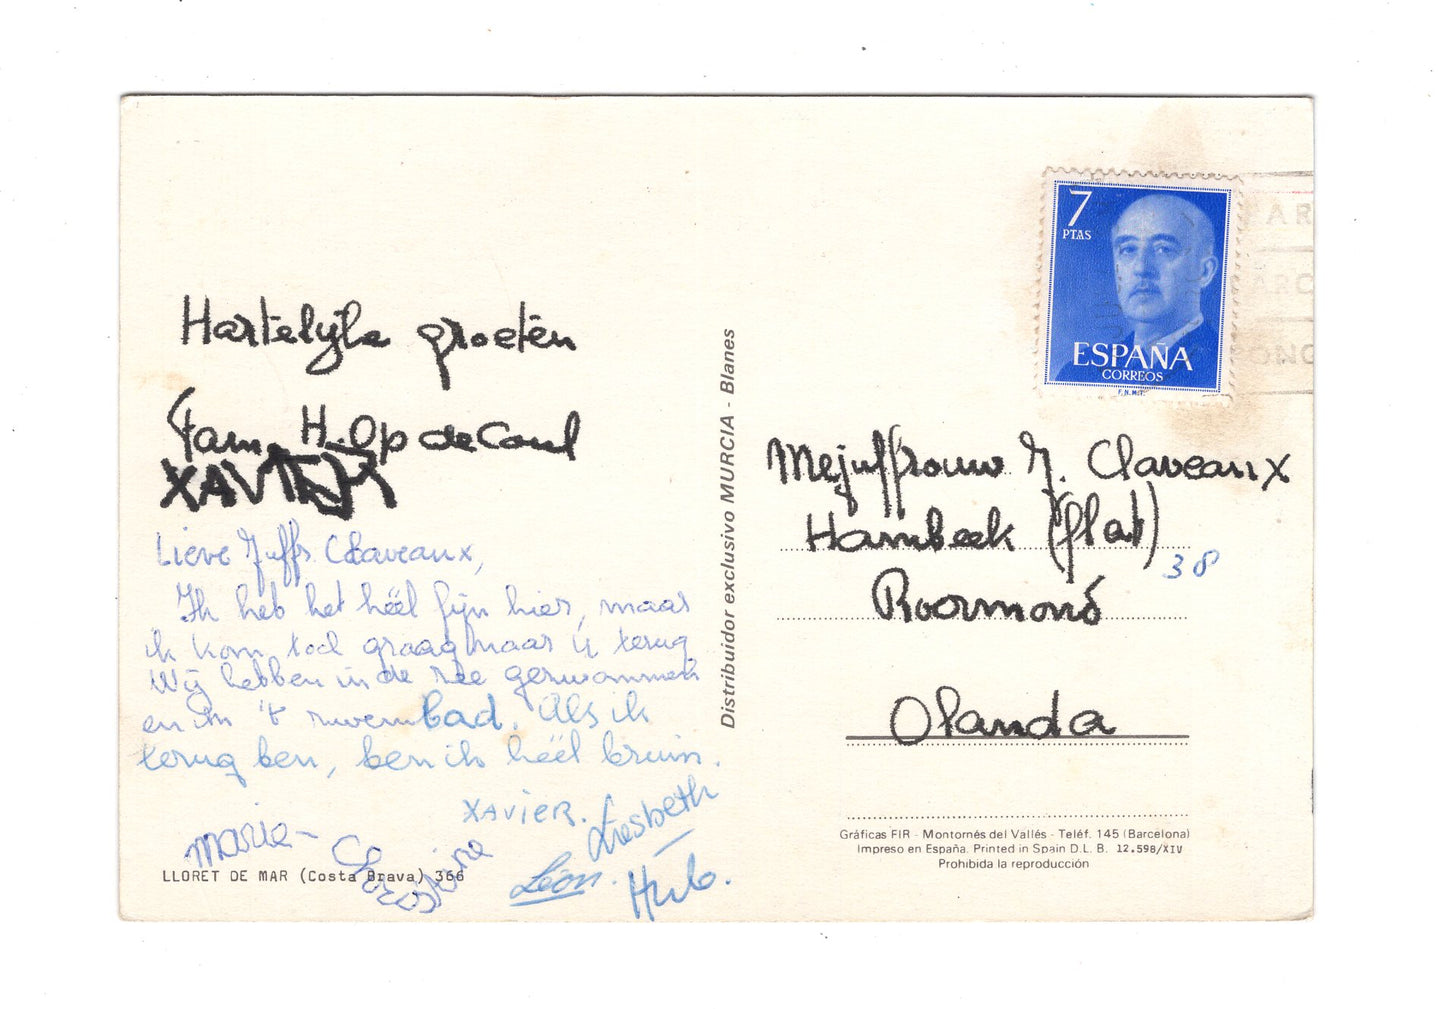 Hartelijke groeten
Fam. H. Op de Coul
XAVIER
Lieve Juffr. Claveaux,
Ik heb het héél fijn hier, maar
ik kom toch graag naar U terug
Wij hebben in de zee gezwommen
en in 't zwembad. Als ik
terug ben, ben ik héél bruin.
XAVIER. Liesbeth
Maria-Christine
Léon. Hub.
LLORET DE MAR (Costa Brava) 366
Distribuidor exclusivo MURCIA - Blanes
7
PTAS
ESPAÑA
CORREOS
F.N.M.T.
Mejuffrouw J. Claveaux
Hambeek (flat) 38
Roermond
Olanda
Gráficas FIR - Montornés del Vallés - Teléf. 145 (Barcelona)
Impreso en España. Printed in Spain D.L. B. 12.598/XIV
Prohibida la reproducción